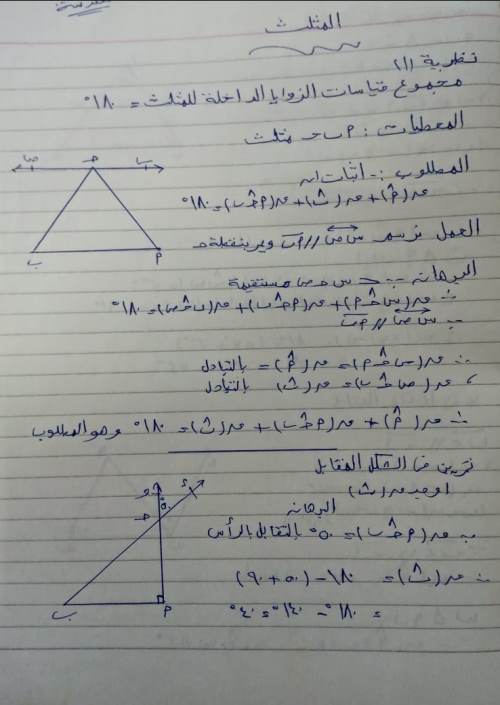 المثلث
نظرية (١)
مجموع قياسات الزوايا الداخلة للمثلث = ١٨٠°
المعطيات : أ ب ح مثلث
المطلوب :- اثبات ان
ص س
ح
ق(أ̂) + ق(ب̂) + ق(أ ح̂ ب) = ١٨٠°
العمل نرسم س ص // أ ب ويمر بنقطة ح
ب أ
البرهان ∵ > س ح ص مستقيمة
∴ ق(س ح̂ أ) + ق(أ ح̂ ب) + ق(ب ح̂ ص) = ١٨٠°
∵ س ص // أ ب
∴ ق(س ح̂ أ) = ق(أ̂) بالتبادل
، ق(ص ح̂ ب) = ق(ب̂) بالتبادل
∴ ق(أ̂) + ق(أ ح̂ ب) + ق(ب̂) = ١٨٠° وهو المطلوب
تمرين في الشكل المقابل
اوجد ق(ب̂)
ه ء
٥٠°
ح
البرهان
∵ ق(أ ح̂ ب) = ٥٠° بالتقابل بالرأس
∴ ق(ب̂) = ١٨٠ - (٥٠ + ٩٠)
= ١٨٠° - ١٤٠° = ٤٠°
ب أ